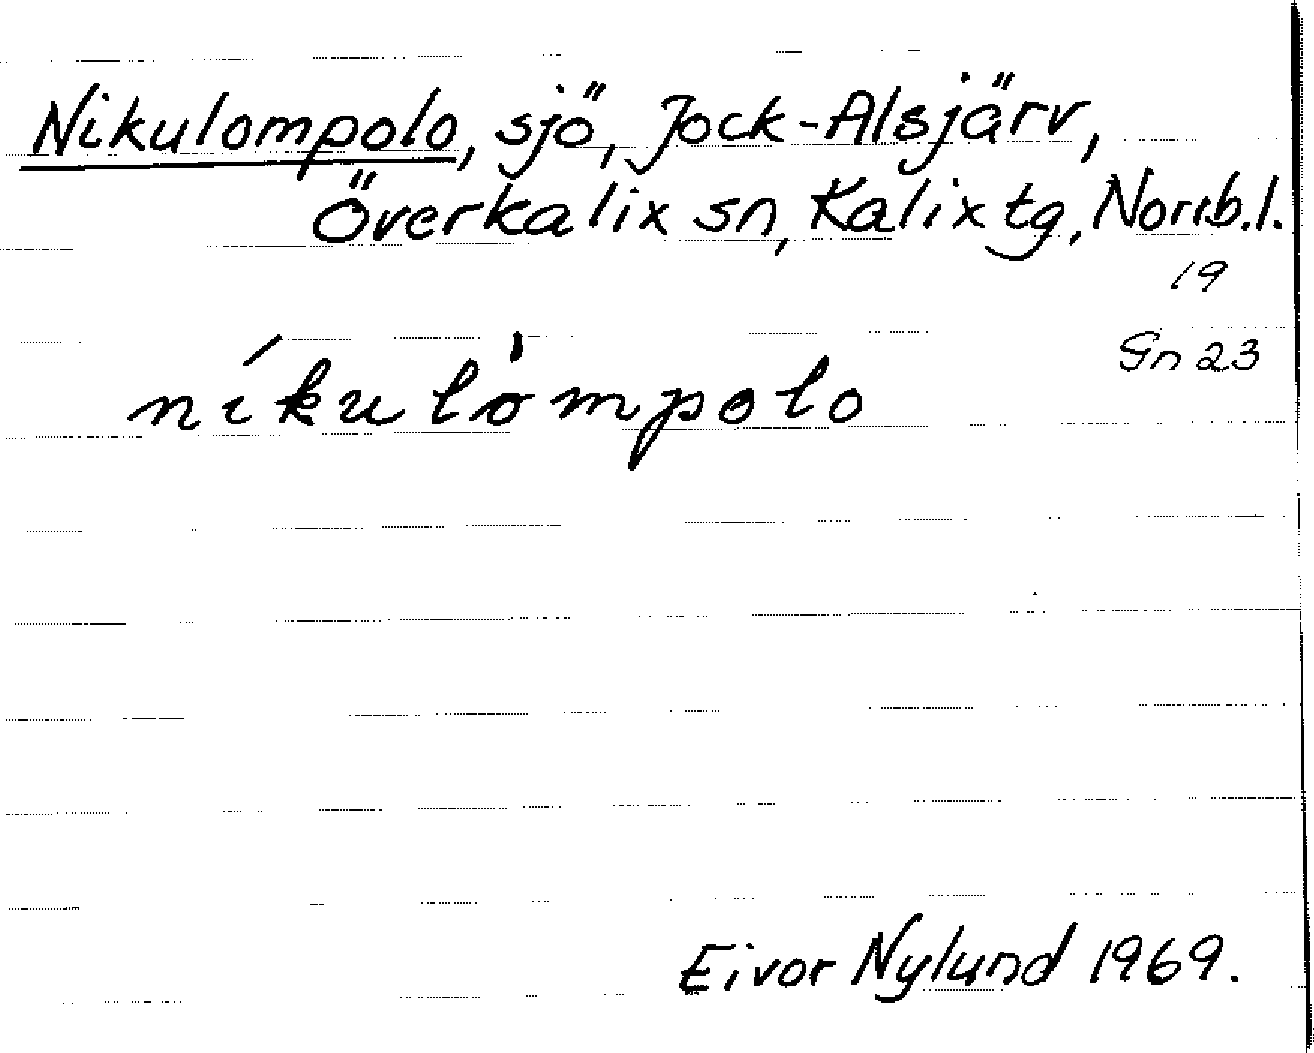 Nikulompolo, sjö, Jock-Alsjärv,
Överkalix sn, Kalix tg, Norrb.l.
19
Gn 23
níkulòmpolo
Eivor Nylund 1969.